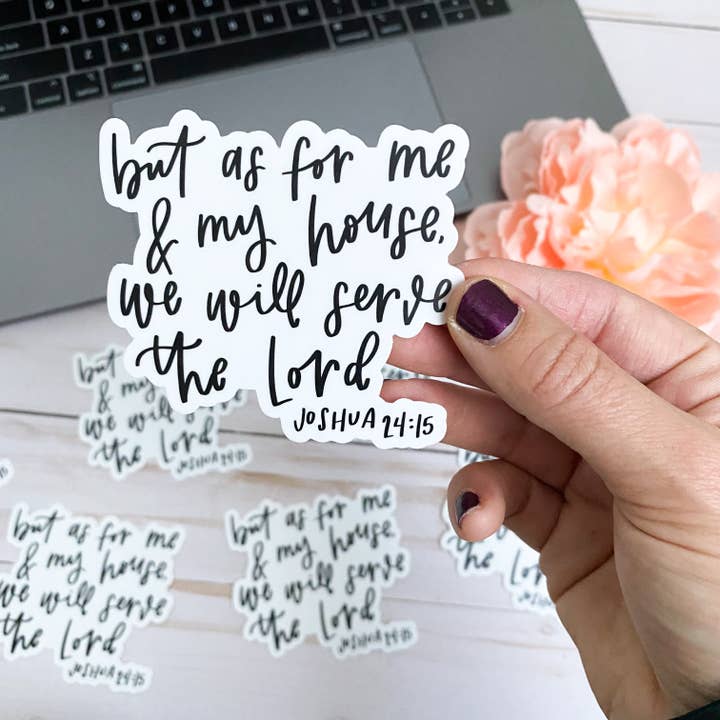 but as for me
& my house,
we will serve
the Lord
JOSHUA 24:15
but
& my
we will serve
the Lord
JOSHUA 24:15
but as for me
& my house,
we will serve
the Lord
JOSHUA 24:15
but as for me
& my house,
we will serve
the Lord
JOSHUA 24:15